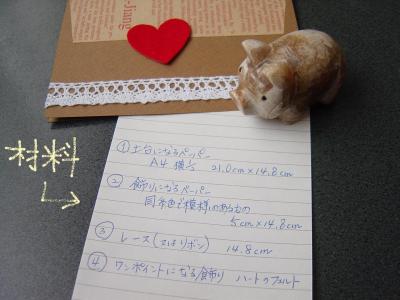 -Jiang
材料
①土台になるペーパー
A4 横1/2 21.0cm×14.8cm
② 飾りになるペーパー
同系色で模様のあるもの
5cm×14.8cm
③ レース(又はリボン) 14.8cm
④ ワンポイントになる飾り ハートのフェルト